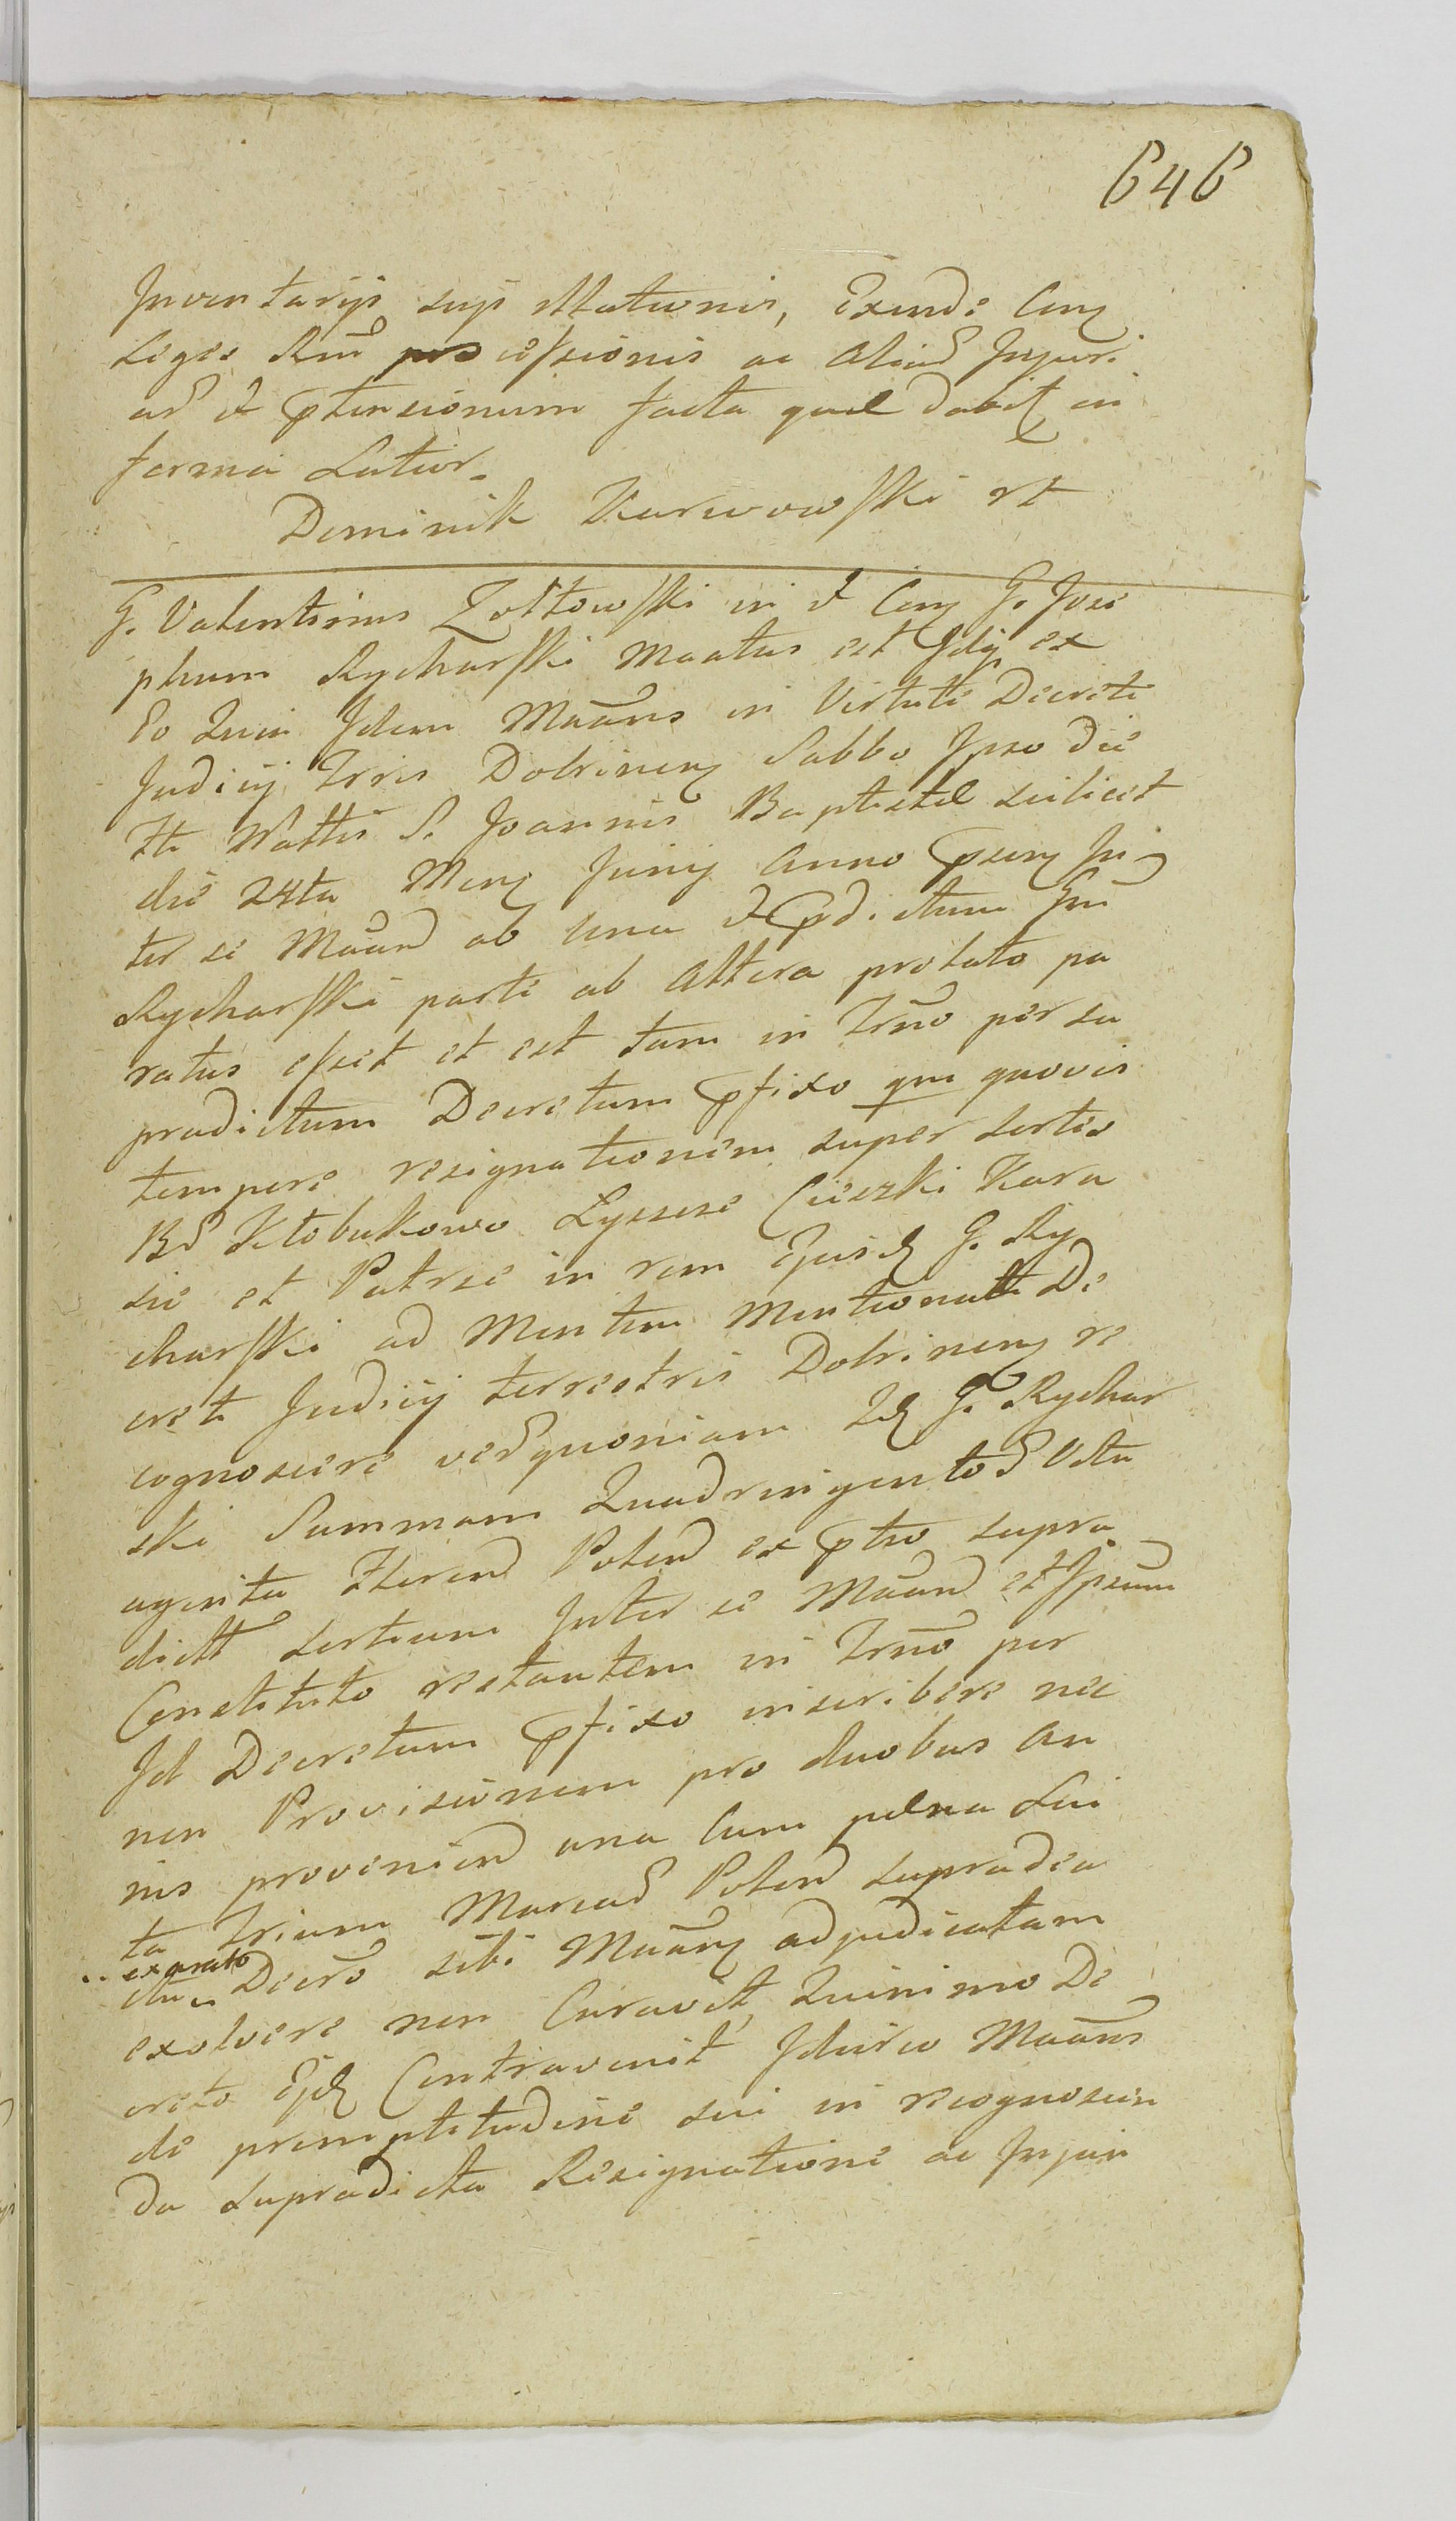 646
Inventarijs sup Mationis, Exinde Conz
Leges Rni pos cessionis ac aliad Injuri
ad et ptensionum facta quae dabit in
forma Latior.
Dominik Karwowski rt
G. Valentinus Zołtowski in et Conz G. Jose
phum Rycharski Maatus est Idq ex
Eo Quia Idem Maans in Virtute Decreti
Judicij Trris Dobrinenz Sabbo Ipso die
Fti Nattis S. Joannis Baptistae scilicet
die 24ta Menz Junij Anno psenz In
ter se Maand ab una et pdictum Gm
Rycharski parte ab altera prolato pa
ratus esset et est tam in Trno per su
pradictum Decretum pfixo qm quovis
tempore resignationem super sortes
Bd Kłobukowo Lyssese Cieszki Kara
sie et Patrze in rem Ejusd G. Ry
charski ad Mentem Mentionatti De
creti Judicij terrestris Dobrinenz re
cognoscere verd quoniam Id G. Rychar
ski Summam Quadringentod Octu
aginta Florend Polend ex ptio supra
dictt sortium Inter se Maand et Ipsum
Constituto restantem in Trno per
Id Decretum pfixo inscribere nec
non Provisionem pro duobus an
nis proveniend una Cum paena Lui
ta Trium Marcad Polend supradea
exarato
ctu Decro sibi Maanz adjudicatam
exolvere non Curavit, Quinimo De
creto Ejd Contravenit Idcirco Maans
de promptitudine sui in recognoscen
da supradicta Resignatione ac Injun